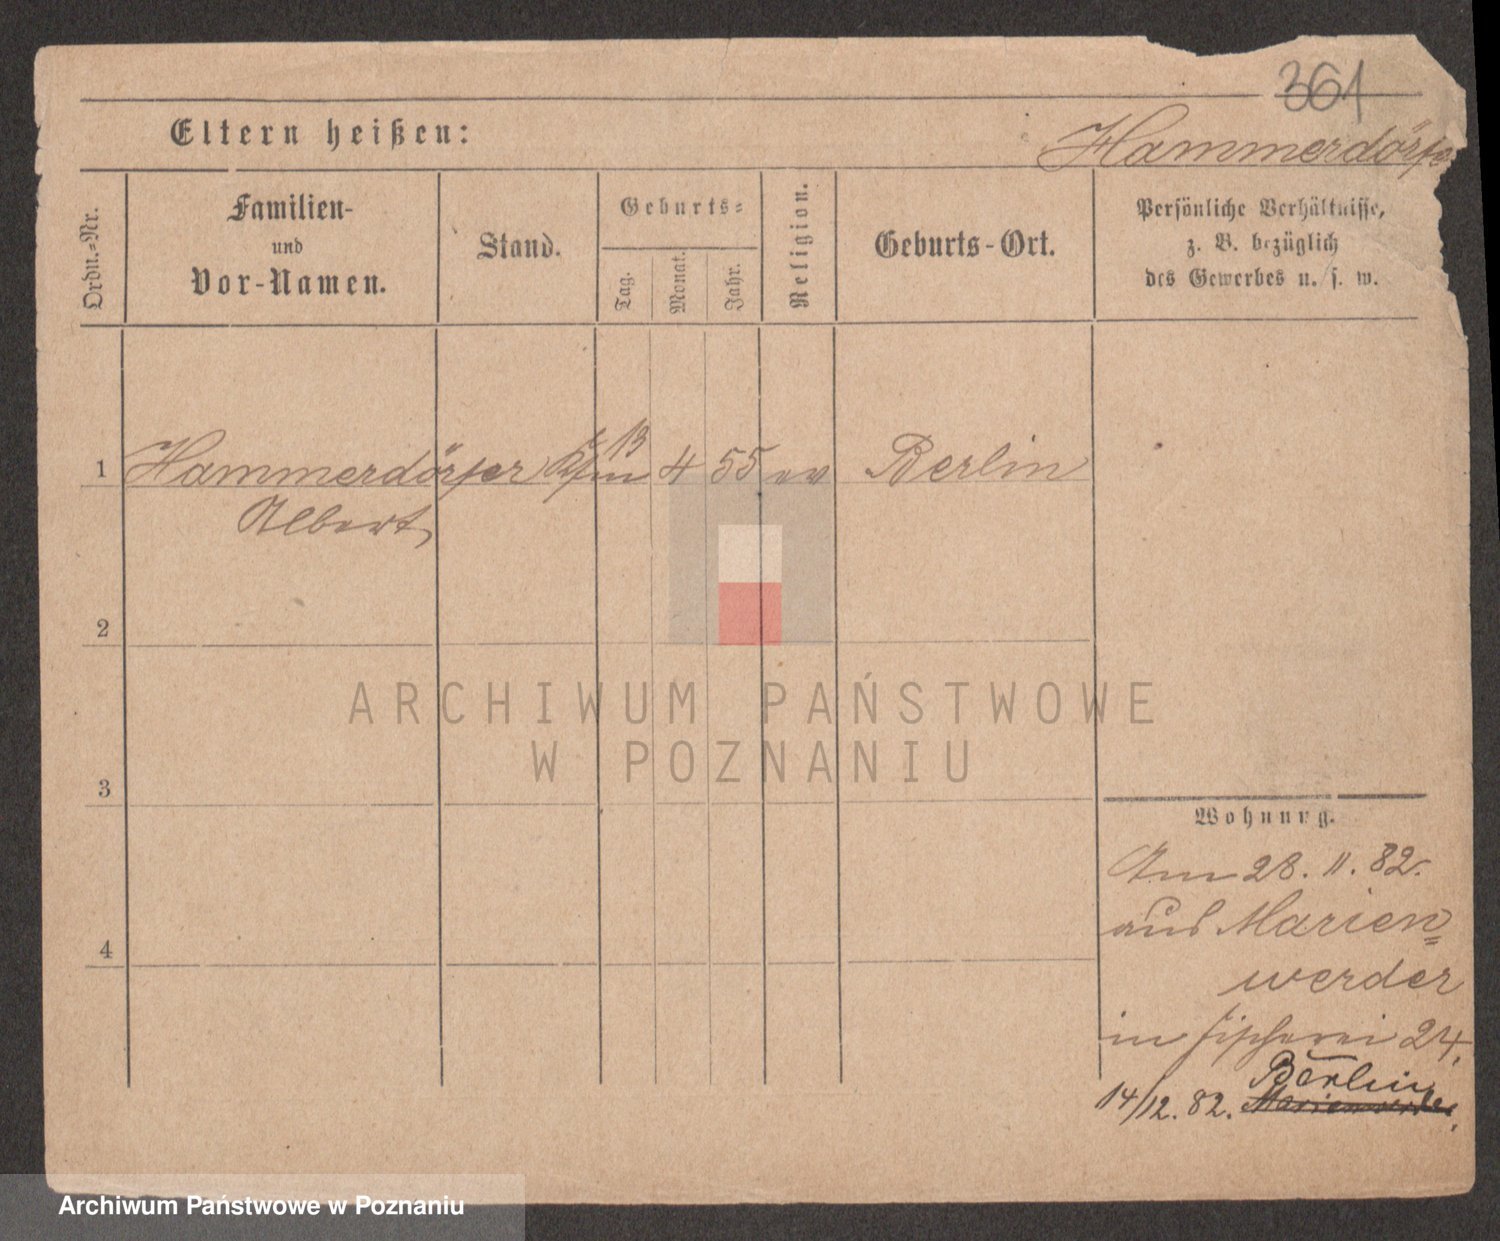 361
Eltern heißen:
Hammerdörfer
Ordn.-Nr.
Familien-
und
Vor-Namen.
Stand.
Geburts-
Tag.
Monat.
Jahr.
Religion.
Geburts-Ort.
Persönliche Verhältnisse,
z. B. bezüglich
des Gewerbes u. s. w.
1 Hammerdörfer Kfm 13 4 55 ev Berlin
Albert
2
3
4
ARCHIWUM PAŃSTWOWE
W POZNANIU
Wohnung.
Am 28. 11. 82.
aus Marien=
werder
in Fischerei 24.
Berlin
14/12. 82. Marienwerder.
Archiwum Państwowe w Poznaniu